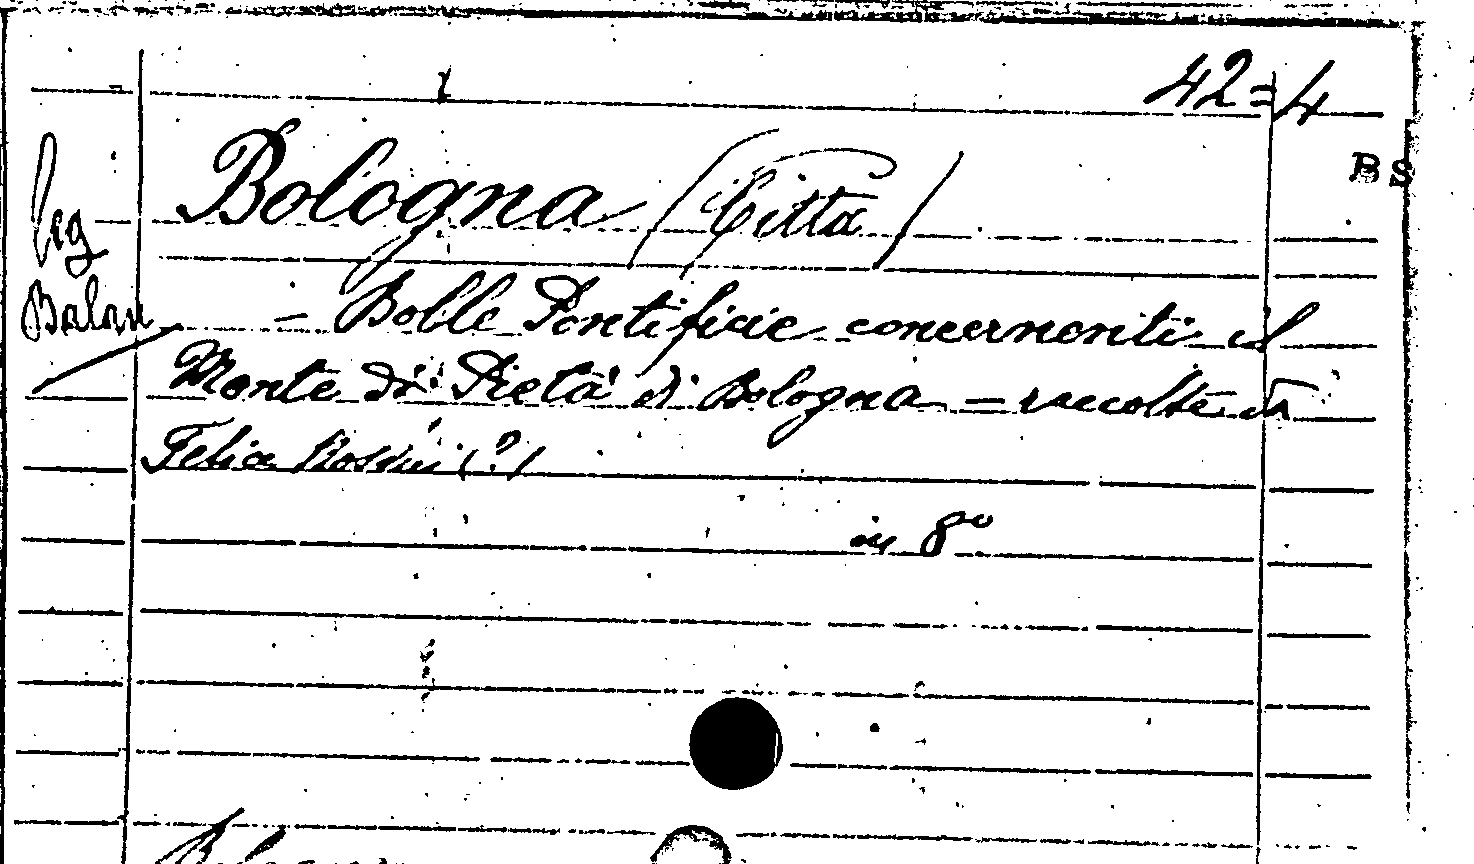 42=4
BS
Bologna (Città)
leg
Balan
- Bolle Pontificie concernenti il
Monte di Pietà di Bologna - raccolte da
Felice Rossini (?)
in 8°